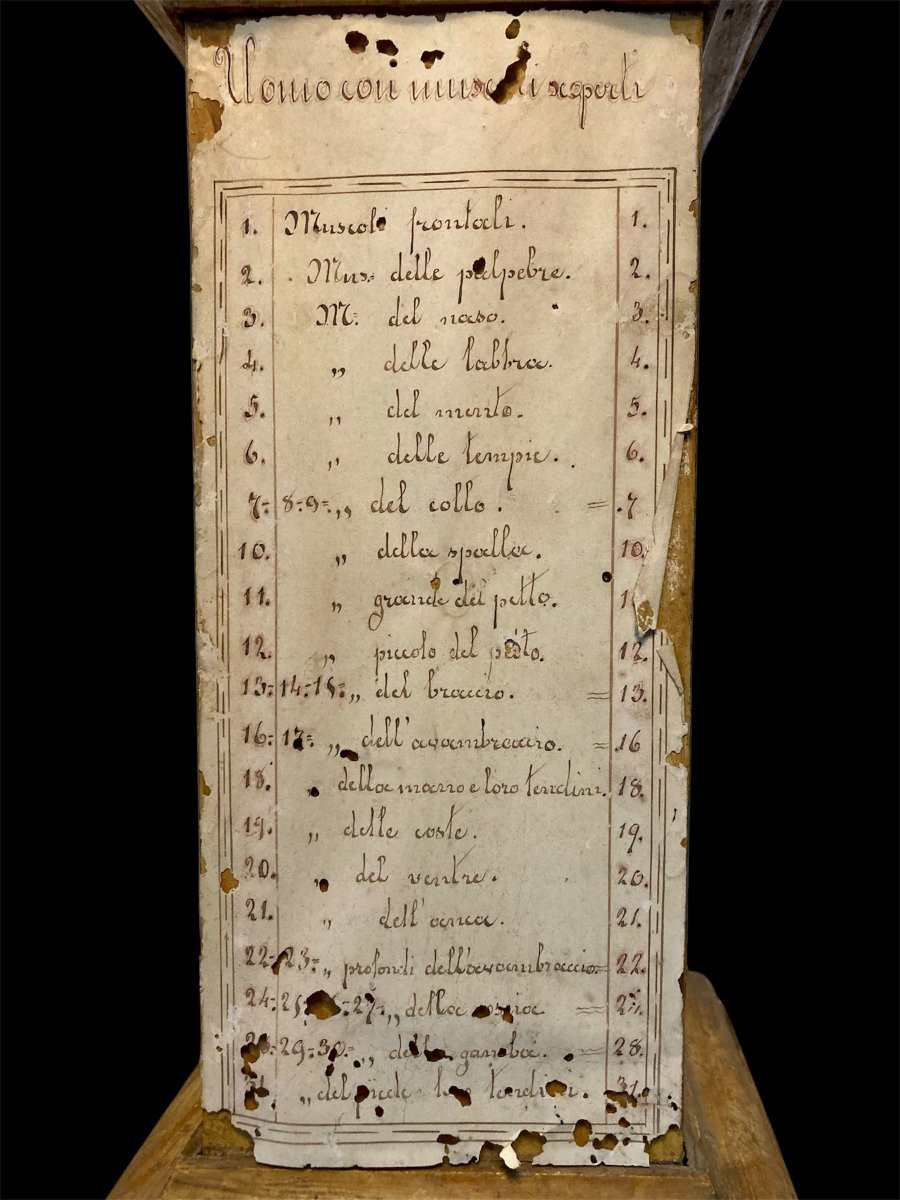 Uomo con muscoli scoperti
1. Muscoli frontali. 1.
2. Mus: delle palpebre. 2.
3. M: del naso. 3.
4. „ delle labbra. 4.
5. „ del mento. 5.
6. „ delle tempie. 6.
7= 8=9= „ del collo. = .7
10. „ della spalla. 10.
11. „ grande del petto.
12. „ piccolo del petto. 12.
13=14=15= „ del braccio. = 13.
16=17= „ dell'avambraccio. = .16
18. „ della mano e loro tendini. 18.
19. „ delle coste. 19.
20. „ del ventre. 20.
21. „ dell'anca. 21.
22=23= „ profondi dell'avambraccio= 22.
24= 27= „ della coscia =
29=30= „ della gamba. = 28.
„ del piede tendini. 31.